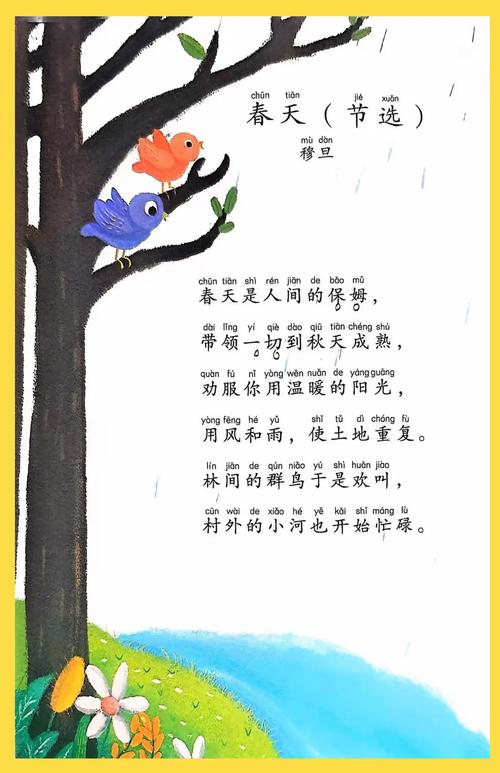 chūn tiān jié xuǎn
春天（节选）
mù dàn
穆旦
chūn tiān shì rén jiān de bǎo mǔ
春天是人间的保姆，
dài lǐng yí qiè dào qiū tiān chéng shú
带领一切到秋天成熟，
quàn fú nǐ yòng wēn nuǎn de yáng guāng
劝服你用温暖的阳光，
yòng fēng hé yǔ shǐ tǔ dì chóng fù
用风和雨，使土地重复。
lín jiān de qún niǎo yú shì huān jiào
林间的群鸟于是欢叫，
cūn wài de xiǎo hé yě kāi shǐ máng lù
村外的小河也开始忙碌。